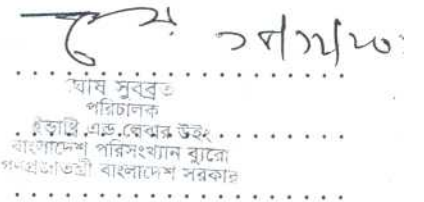 ঘোষ সুবব্রত
পরিচালক
ইন্ডাস্ট্রি এন্ড লেবার উইং
বাংলাদেশ পরিসংখ্যান ব্যুরো
গণপ্রজাতন্ত্রী বাংলাদেশ সরকার